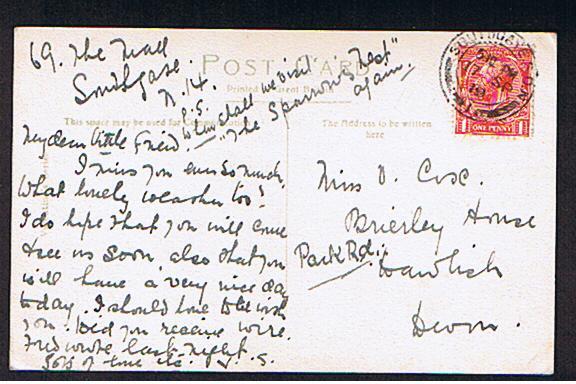 69. The Mall
Southgate.
N. 14.
P.S.
When shall we visit
"The Sparrow's Nest"
again.
POST CARD
Printed
This space may be used for
The Address to be written
here
My dear little Friend.
I miss you ever so much.
What lovely weather too!
I do hope that you will come
& see us soon also that you
will have a very nice day
today. I should love to be with
you. Did you receive wire.
Fred wrote last night.
Lots of love etc.
Miss D. Cox.
Brierley House
Park Rd.,
Dawlish
Devon.
SOUTHGATE
ONE PENNY